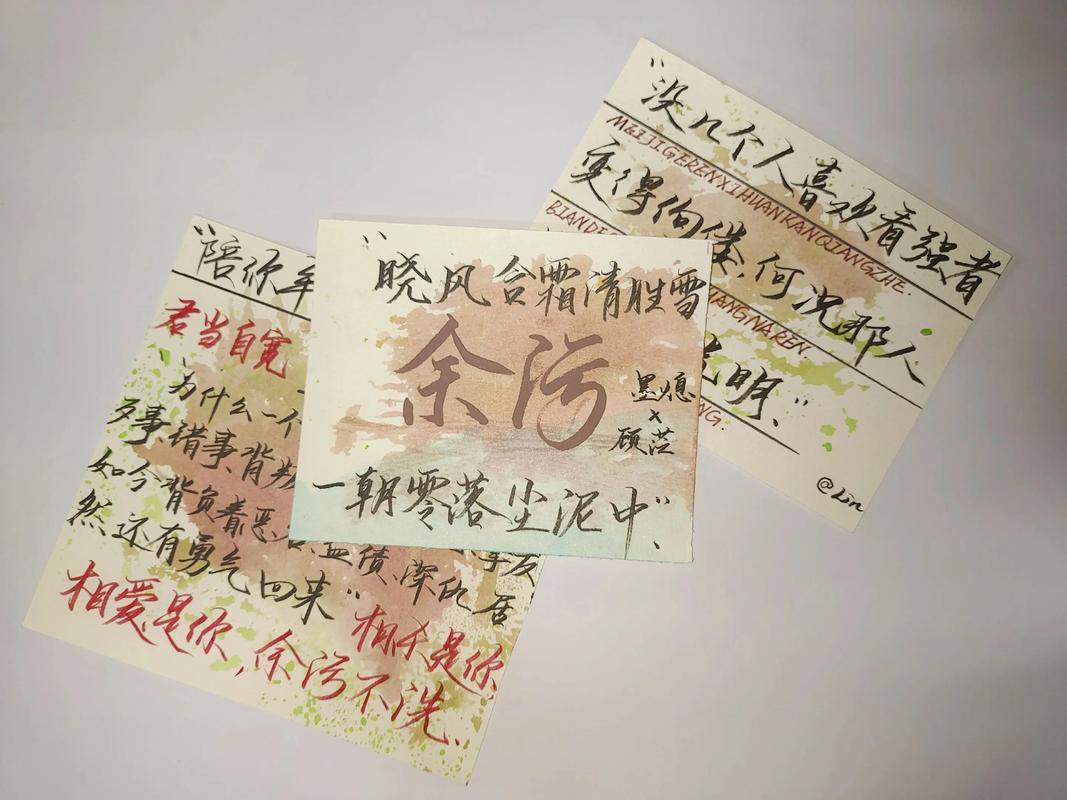 “陪你
君当自宽
“为什么一个
歹事、错事、背
如今背负着恶
血债、深仇
居
然还有勇气回来”
相爱是你,
相杀是你
余污不洗.
“晓风含霜清胜雪
余污
墨熄
×
顾茫
一朝零落尘泥中”
“没几个人喜欢看强者
MEIJIGERENXIHUANKANQIANGZHE.
变得佝偻,何况那人
BIANDE
ANGNAREN
光明.”
NG.
@Lin